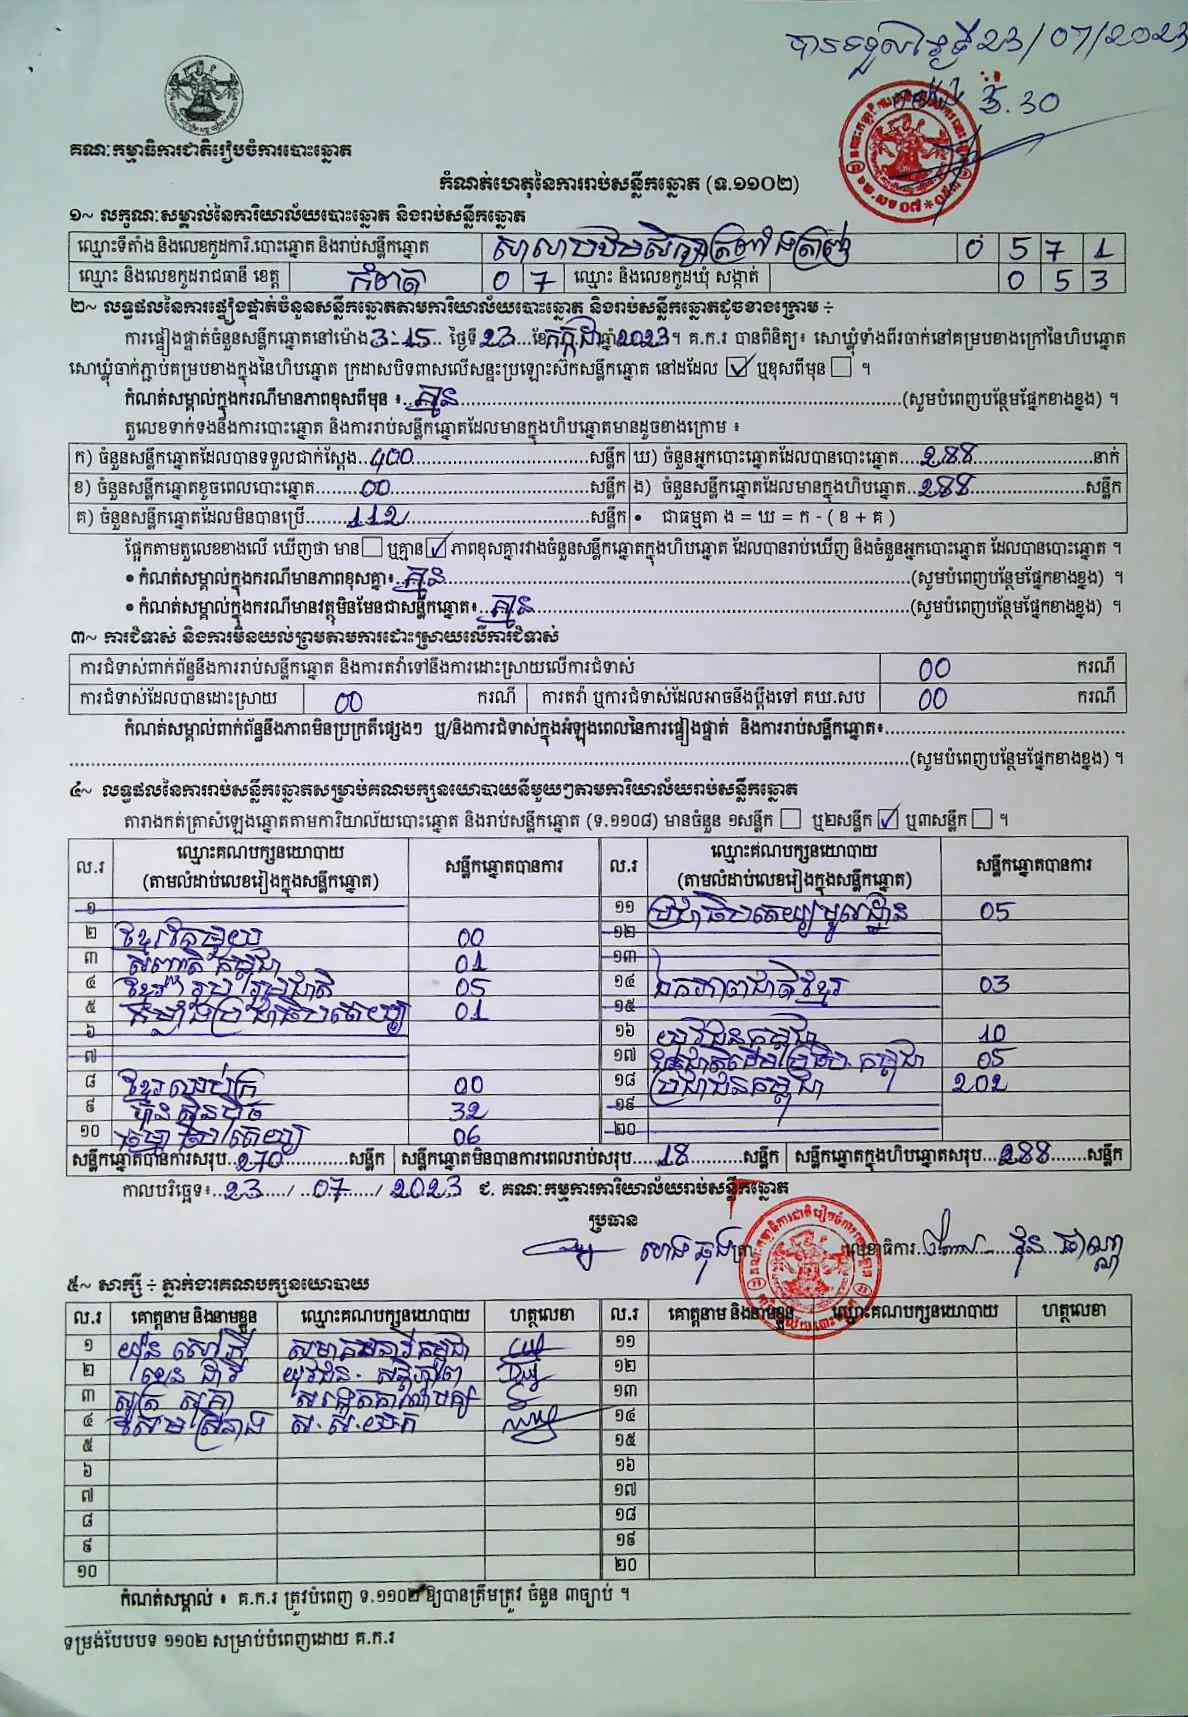 បានទទួលថ្ងៃទី 23/07/2023
ម៉ោង 3.30
គណៈកម្មាធិការជាតិរៀបចំការបោះឆ្នោត
កំណត់ហេតុនៃការរាប់សន្លឹកឆ្នោត (ទ.១១០២)
១~ លក្ខណៈសម្គាល់នៃការិយាល័យបោះឆ្នោត និងរាប់សន្លឹកឆ្នោត
ឈ្មោះទីតាំង និងលេខកូដការិ.បោះឆ្នោត និងរាប់សន្លឹកឆ្នោត 0 5 7 1
ឈ្មោះ និងលេខកូដរាជធានី ខេត្ត កំពត 0 7 ឈ្មោះ និងលេខកូដឃុំ សង្កាត់ 0 5 3
២~ លទ្ធផលនៃការផ្ទៀងផ្ទាត់ចំនួនសន្លឹកឆ្នោតតាមការិយាល័យបោះឆ្នោត និងរាប់សន្លឹកឆ្នោតដូចខាងក្រោម ÷
ការផ្ទៀងផ្ទាត់ចំនួនសន្លឹកឆ្នោតនៅម៉ោង 3:15 ថ្ងៃទី 23 ខែ កក្កដា ឆ្នាំ 2023។ គ.ក.រ បានពិនិត្យ៖ សោឃ្លុំទាំងពីរចាក់នៅគម្របខាងក្រៅនៃហិបឆ្នោត
សោឃ្លុំចាក់ភ្ជាប់គម្របខាងក្នុងនៃហិបឆ្នោត ក្រដាសបិទពាសលើសន្ទះប្រឡោះស៊កសន្លឹកឆ្នោត នៅដដែល ☑ ឬខុសពីមុន ☐ ។
កំណត់សម្គាល់ក្នុងករណីមានភាពខុសពីមុន ៖ គ្មាន (សូមបំពេញបន្ថែមផ្នែកខាងខ្នង) ។
តួលេខទាក់ទងនឹងការបោះឆ្នោត និងការរាប់សន្លឹកឆ្នោតដែលមានក្នុងហិបឆ្នោតមានដូចខាងក្រោម ៖
ក) ចំនួនសន្លឹកឆ្នោតដែលបានទទួលជាក់ស្តែង 400 សន្លឹក ឃ) ចំនួនអ្នកបោះឆ្នោតដែលបានបោះឆ្នោត 288 នាក់
ខ) ចំនួនសន្លឹកឆ្នោតខូចពេលបោះឆ្នោត 00 សន្លឹក ង) ចំនួនសន្លឹកឆ្នោតដែលមានក្នុងហិបឆ្នោត 288 សន្លឹក
គ) ចំនួនសន្លឹកឆ្នោតដែលមិនបានប្រើ 112 សន្លឹក • ជាធម្មតា ង = ឃ = ក - ( ខ + គ )
ផ្អែកតាមតួលេខខាងលើ ឃើញថា មាន ☐ ឬគ្មាន ☑ ភាពខុសគ្នារវាងចំនួនសន្លឹកឆ្នោតក្នុងហិបឆ្នោត ដែលបានរាប់ឃើញ និងចំនួនអ្នកបោះឆ្នោត ដែលបានបោះឆ្នោត ។
• កំណត់សម្គាល់ក្នុងករណីមានភាពខុសគ្នា៖ គ្មាន (សូមបំពេញបន្ថែមផ្នែកខាងខ្នង) ។
• កំណត់សម្គាល់ក្នុងករណីមានវត្ថុមិនមែនជាសន្លឹកឆ្នោត៖ គ្មាន (សូមបំពេញបន្ថែមផ្នែកខាងខ្នង) ។
៣~ ការជំទាស់ និងការមិនយល់ព្រមតាមការដោះស្រាយលើការជំទាស់
ការជំទាស់ពាក់ព័ន្ធនឹងការរាប់សន្លឹកឆ្នោត និងការតវ៉ាទៅនឹងការដោះស្រាយលើការជំទាស់ 00 ករណី
ការជំទាស់ដែលបានដោះស្រាយ 00 ករណី ការតវ៉ា ឬការជំទាស់ដែលអាចនឹងប្តឹងទៅ គឃ.សប 00 ករណី
កំណត់សម្គាល់ពាក់ព័ន្ធនឹងភាពមិនប្រក្រតីផ្សេងៗ ឬ/និងការជំទាស់ក្នុងអំឡុងពេលនៃការផ្ទៀងផ្ទាត់ និងការរាប់សន្លឹកឆ្នោត៖
(សូមបំពេញបន្ថែមផ្នែកខាងខ្នង) ។
៤~ លទ្ធផលនៃការរាប់សន្លឹកឆ្នោតសម្រាប់គណបក្សនយោបាយនីមួយៗតាមការិយាល័យរាប់សន្លឹកឆ្នោត
តារាងកត់ត្រាសំឡេងឆ្នោតតាមការិយាល័យបោះឆ្នោត និងរាប់សន្លឹកឆ្នោត (ទ.១១០៨) មានចំនួន ១សន្លឹក ☐ ឬ២សន្លឹក ☑ ឬ៣សន្លឹក ☐ ។
ល.រ ឈ្មោះគណបក្សនយោបាយ (តាមលំដាប់លេខរៀងក្នុងសន្លឹកឆ្នោត) សន្លឹកឆ្នោតបានការ ល.រ ឈ្មោះគណបក្សនយោបាយ (តាមលំដាប់លេខរៀងក្នុងសន្លឹកឆ្នោត) សន្លឹកឆ្នោតបានការ
១ ១១ ប្រជាធិបតេយ្យមូលដ្ឋាន 05
២ ខ្មែរតែមួយ 00 ១២
៣ សញ្ជាតិកម្ពុជា 01 ១៣
៤ ខ្មែររួបរួមជាតិ 05 ១៤ ឯកភាពជាតិខ្មែរ 03
៥ កម្លាំងប្រជាធិបតេយ្យ 01 ១៥
៦ ១៦ យុវជនកម្ពុជា 10
៧ ១៧ ជនជាតិដើមប្រជាធិប.កម្ពុជា 05
៨ ខ្មែរឈប់ក្រ 00 ១៨ ប្រជាជនកម្ពុជា 202
៩ ហ៊្វុនស៊ិនប៉ិច 32 ១៩
១០ ធម្មាធិបតេយ្យ 06 ២០
សន្លឹកឆ្នោតបានការសរុប 270 សន្លឹក សន្លឹកឆ្នោតមិនបានការពេលរាប់សរុប 18 សន្លឹក សន្លឹកឆ្នោតក្នុងហិបឆ្នោតសរុប 288 សន្លឹក
កាលបរិច្ឆេទ៖ 23 / 07 / 2023 ជ. គណៈកម្មការការិយាល័យរាប់សន្លឹកឆ្នោត
ប្រធាន
ហេង ឆុង ត្រា លេខាធិការ
៥~ សាក្សី ÷ ភ្នាក់ងារគណបក្សនយោបាយ
ល.រ គោត្តនាម និងនាមខ្លួន ឈ្មោះគណបក្សនយោបាយ ហត្ថលេខា ល.រ គោត្តនាម និងនាមខ្លួន ឈ្មោះគណបក្សនយោបាយ ហត្ថលេខា
១ សមាគមនារីកម្ពុជា ១១
២ យុវជន.សន្តិភាព ១២
៣ ១៣
៤ ស.ស.យ.ក ១៤
៥ ១៥
៦ ១៦
៧ ១៧
៨ ១៨
៩ ១៩
១០ ២០
កំណត់សម្គាល់ ៖ គ.ក.រ ត្រូវបំពេញ ទ.១១០២ ឱ្យបានត្រឹមត្រូវ ចំនួន ៣ច្បាប់ ។
ទម្រង់បែបបទ ១១០២ សម្រាប់បំពេញដោយ គ.ក.រ